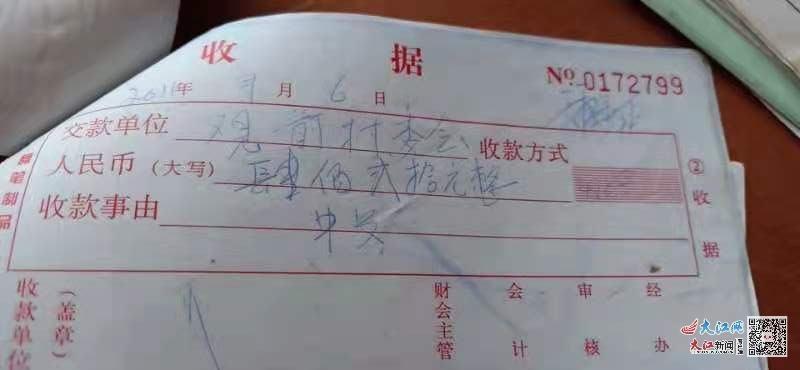 收 据
№ 0172799
2011年 9月 6日
交款单位 观前村委会 收款方式
人民币(大写) 肆佰贰拾元整
收款事由
②收据
收款单位
(盖章)
财会主管
会计
审核
经办
大江网
大江新闻